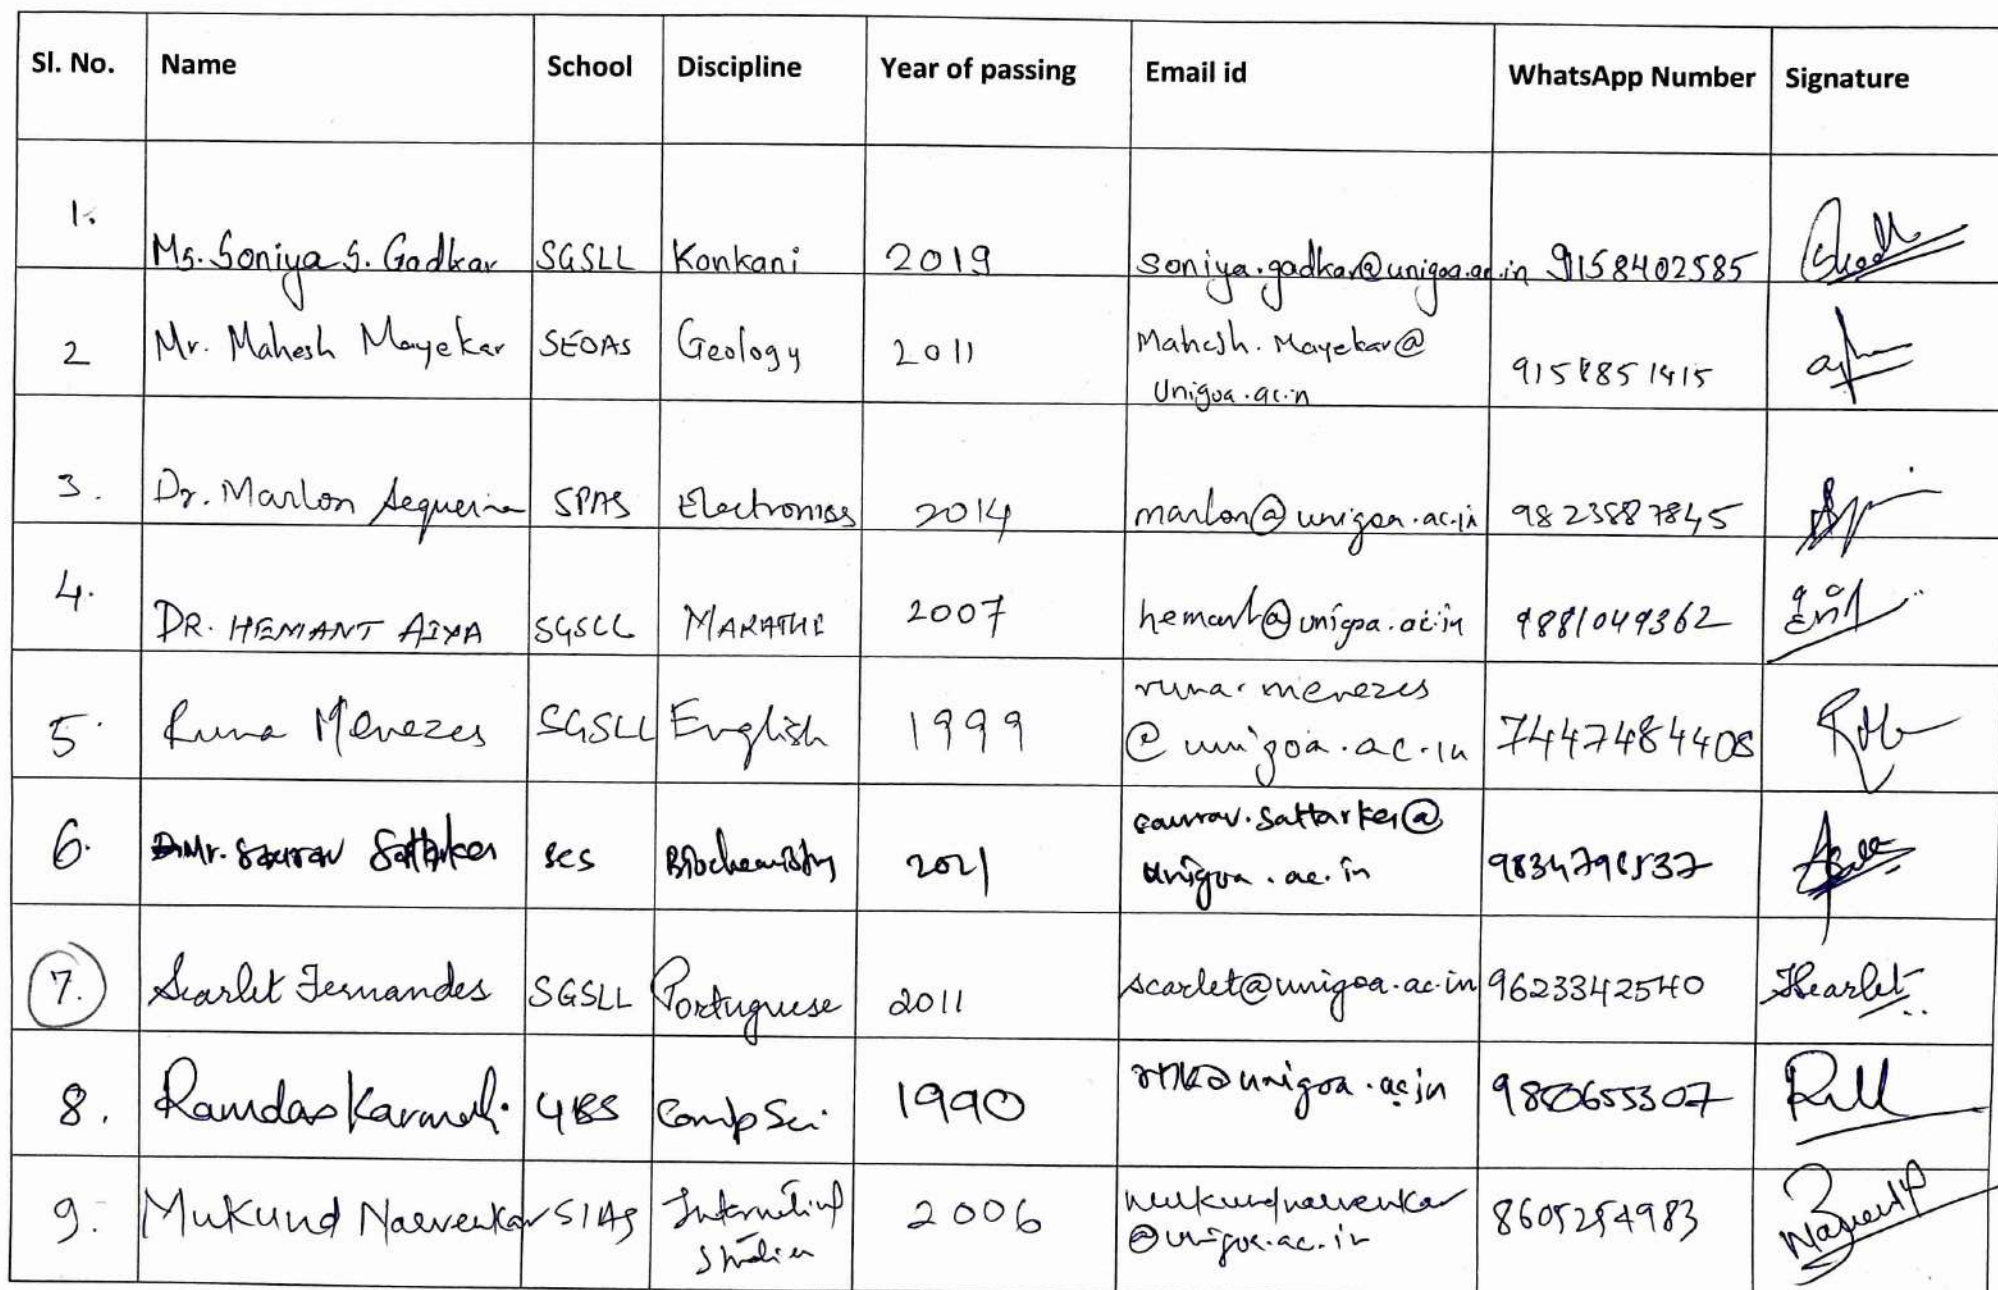 Sl. No. Name School Discipline Year of passing Email id WhatsApp Number Signature
1. Ms. Soniya S. Gadkar SGSLL Konkani 2019 soniya.gadkar@unigoa.ac.in 9158402585
2 Mr. Mahesh Mayekar SEOAS Geology 2011 Mahesh.Mayekar@
Unigoa.ac.in
3. Dr. Marlon Sequeira SPAS Electronics 2014 marlon@unigoa.ac.in 9823887845
4. DR. HEMANT AIYA SGSLL MARATHI 2007 hemant@unigoa.ac.in 9881049362
5. Runa Menezes SGSLL English 1999 runa.menezes
@unigoa.ac.in 7447484408
6. Mr. Saurav Sattarker SCS Biochemistry 2021 saurav.sattarker@
unigoa.ac.in
7. Scarlet Fernandes SGSLL Portuguese 2011 scarlet@unigoa.ac.in 9623342540 Scarlet
8. Ramdas Karmali GBS Comp Sci. 1990 rnk@unigoa.ac.in
9. Mukund Naervenkar SIAS International
Studies 2006 mukundnaervenkar
@unigoa.ac.in 8605254983